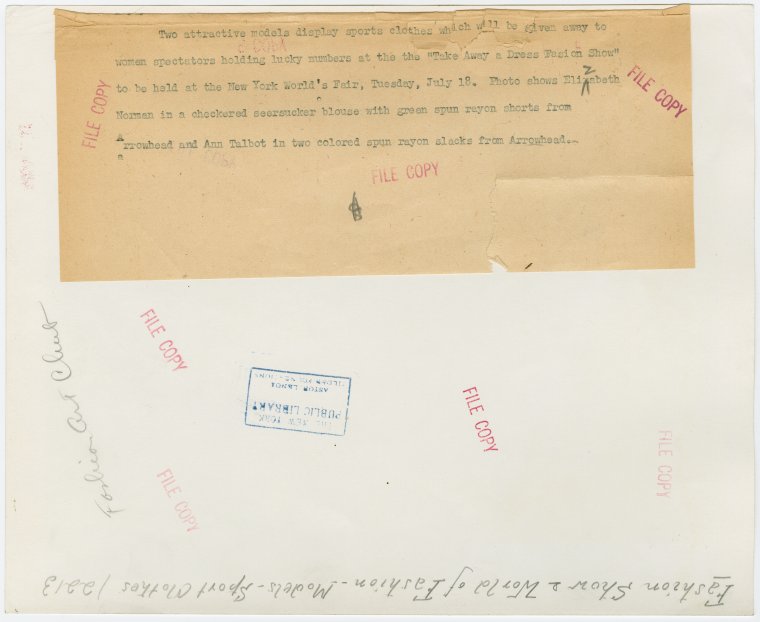 Two attractive models display sports clothes which will be given away to
women spectators holding lucky numbers at the the "Take Away a Dress Fasion Show"
to be held at the New York World's Fair, Tuesday, July 18. Photo shows Elizabeth
Norman in a checkered seersucker blouse with green spun rayon shorts from
Arrowhead and Ann Talbot in two colored spun rayon slacks from Arrowhead.
FILE COPY
FILE COPY
FILE COPY
FILE COPY
Fashion Art
THE NEW YORK
PUBLIC LIBRARY
ASTOR LENOX
TILDEN FOUNDATIONS
FILE COPY
FILE COPY
FILE COPY
Fashion Show - World of Fashion - Models - Sport Clothes